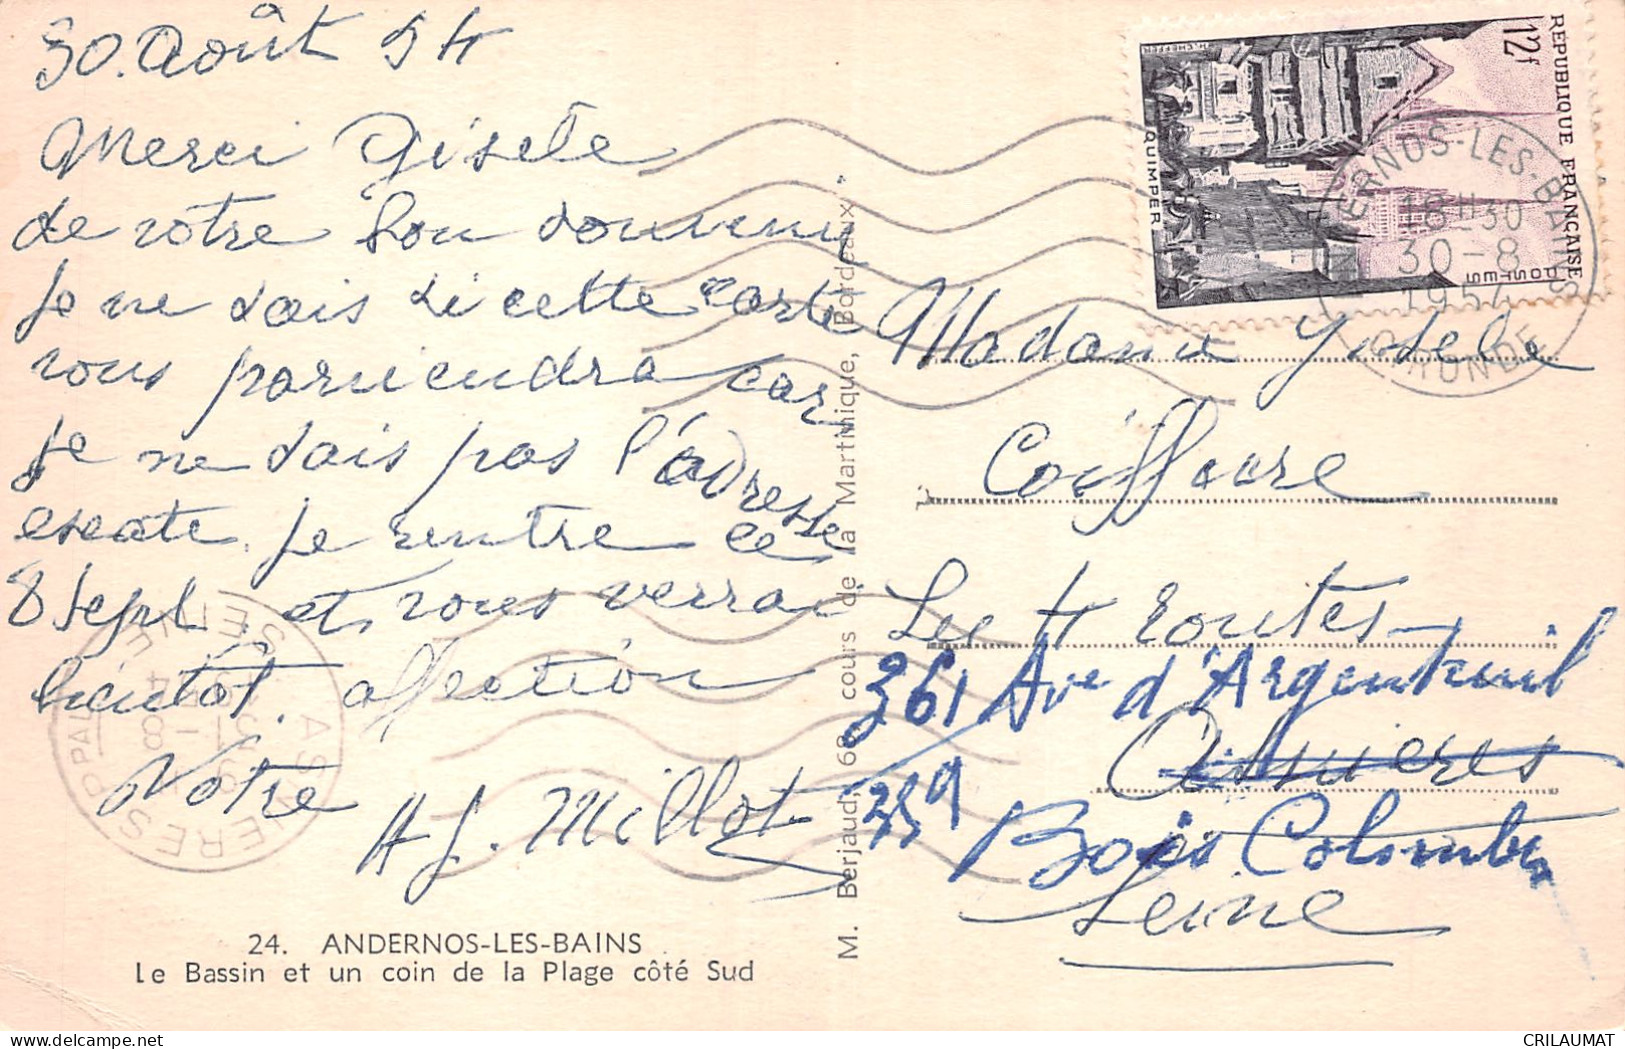 30. Août 54
Merci Gisèle
de votre bon souvenir
Je ne sais si cette carte
vous parviendra car
je ne sais pas l'adresse
exacte. Je rentre le
8 Sept. et vous verrai
bientôt. affection
Votre
A J. Millot
24. ANDERNOS-LES-BAINS
Le Bassin et un coin de la Plage côté Sud
M. Berjaud, 60 cours de la Martinique, Bordeaux
REPUBLIQUE FRANÇAISE
POSTES
12f
QUIMPER
H. CHEFFER
ANDERNOS-LES-BAINS
18H30
30-8
1954
GIRONDE
ASNIERES PPAL
SEINE
31-8
Madame Gisele
Coiffure
Les 4 Routes
361 Ave d'Argenteuil
Asnieres
359
Bois Colombes
Seine
CRILAUMAT